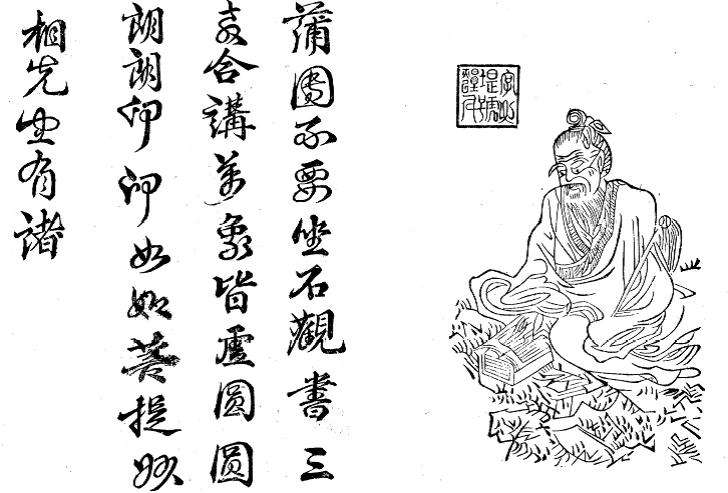 蒲團不要坐石觀書三
教合講萬象皆虛圓圓
朗朗印印如如菩提妙
相先生有諸